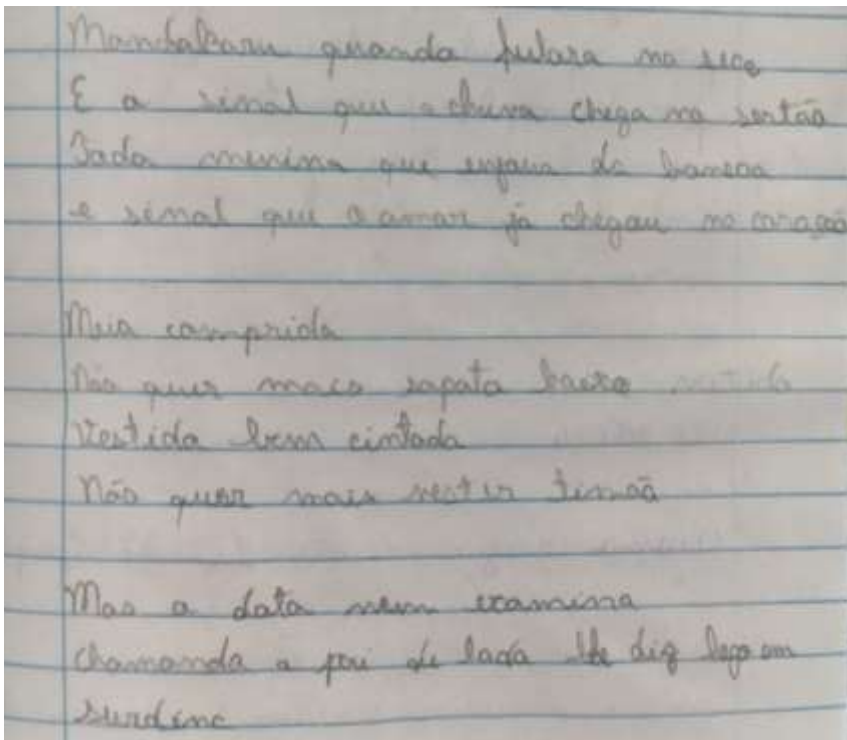 Mandakaru quando fulora na seca
E a sinal que a chuva chega no sertão
Toda menina que enjoua da boneca
e sinal que o amor já chegou no coração
Meia comprida
Não quer mais sapato baixo vestido
Vestido bem cintado
Não quer mais vestir timão
Mas o doto nem examina
Chamando o pai de lado lhe diz logo em
surdina